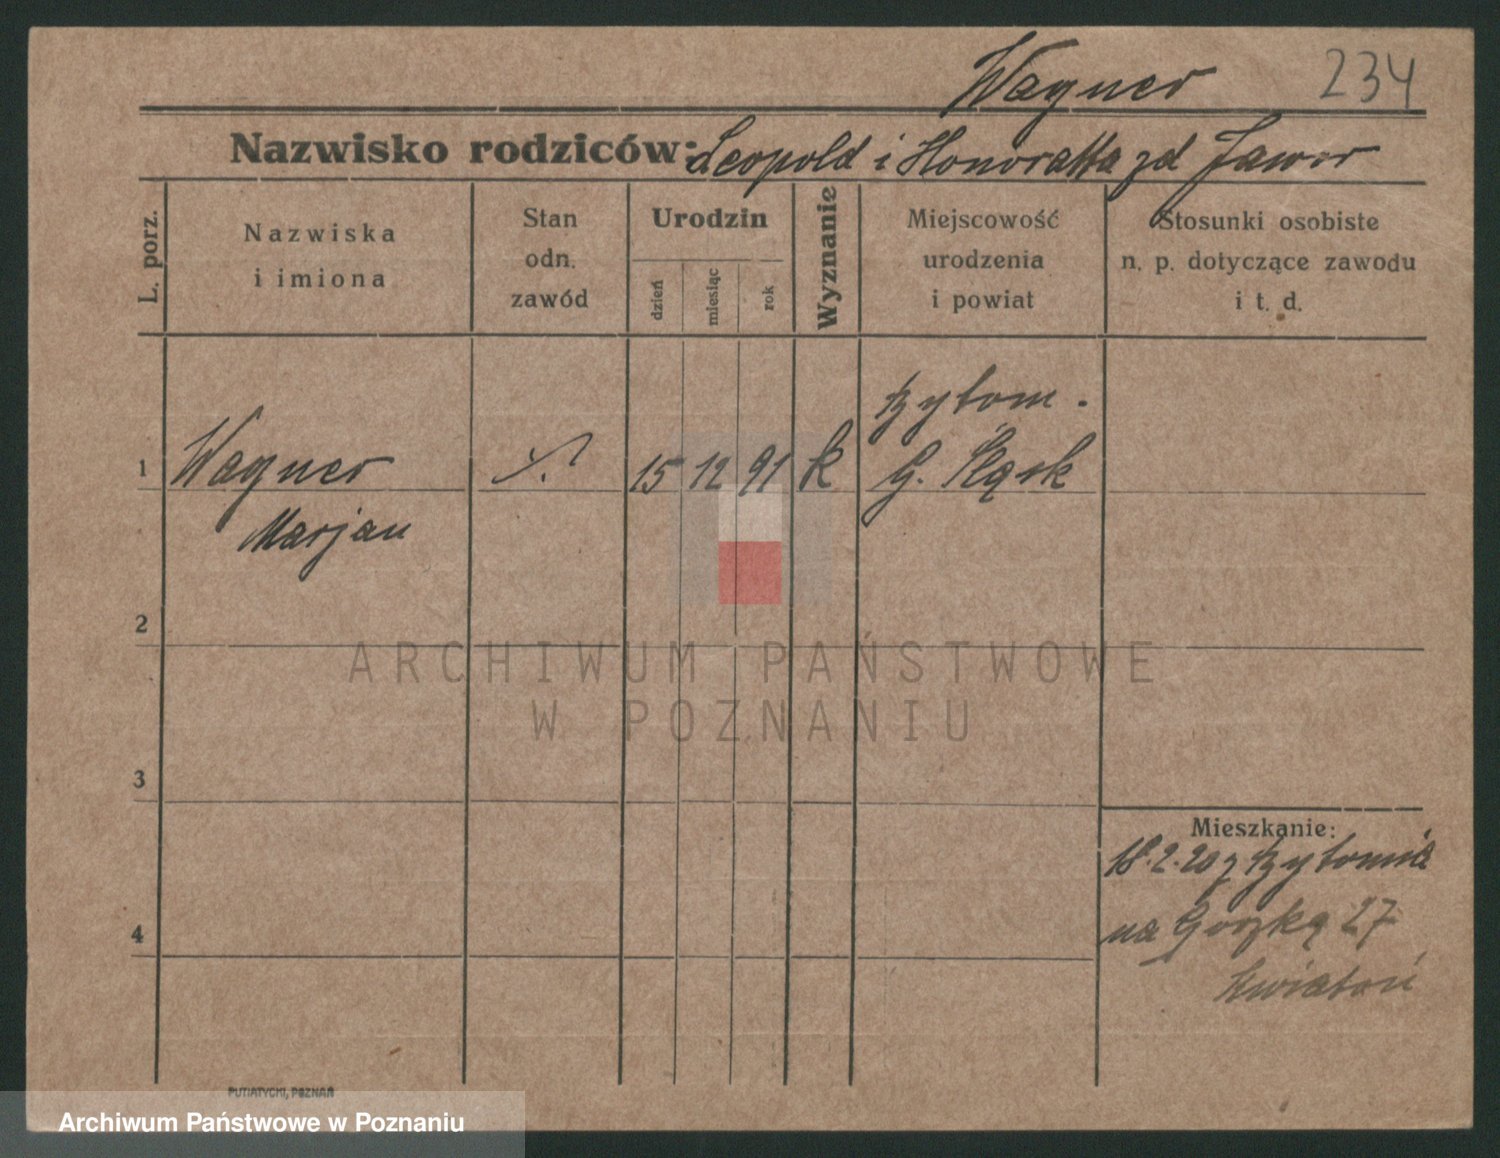 Wagner 234
Nazwisko rodziców: Leopold i Honoratta zd Jawor
L. porz.
Nazwiska
i imiona
Stan
odn.
zawód
Urodzin
dzień
miesiąc
rok
Wyznanie
Miejscowość
urodzenia
i powiat
Stosunki osobiste
n. p. dotyczące zawodu
i t. d.
Bytom.
1 Wagner 15 12 91 k G. Śląsk
Marjan
2
ARCHIWUM PAŃSTWOWE
W POZNANIU
3
Mieszkanie:
18.2.20 z Bytomia
4
na 27
Kwiatoń
PUTIATYCKI, POZNAŃ
Archiwum Państwowe w Poznaniu